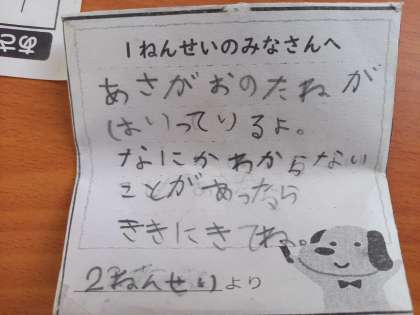 あさ
1ねんせいのみなさんへ
あさがおのたねが
はいっているよ。
なにかわからない
ことがあったら
ききにきてね。
2ねんせいより